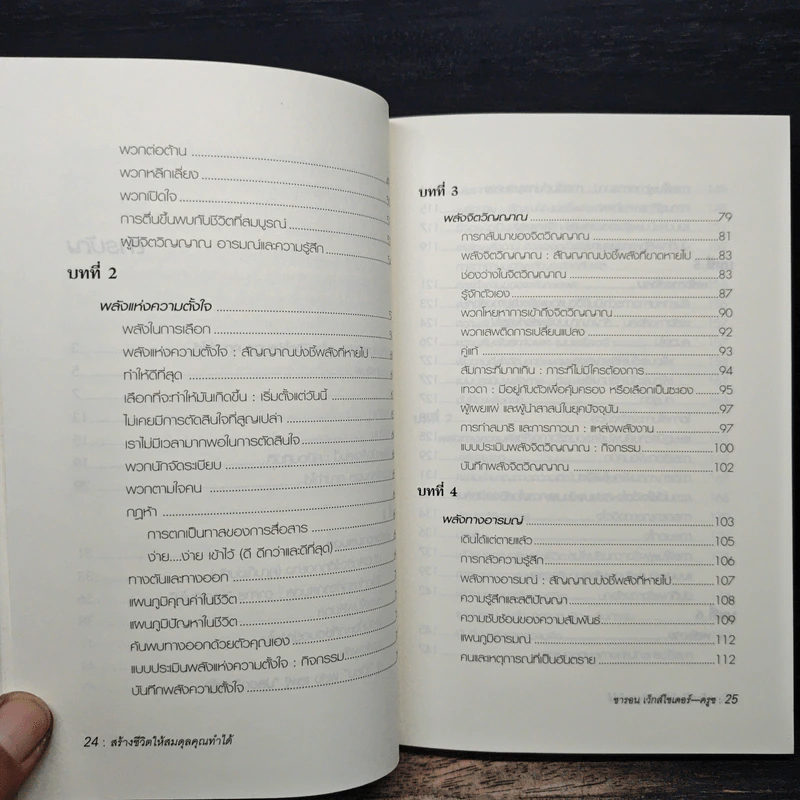 พวกต่อต้าน
พวกหลีกเลี่ยง
พวกเปิดใจ
การตื่นขึ้นพบกับชีวิตที่สมบูรณ์
ผู้มีจิตวิญญาณ อารมณ์และความรู้สึก
บทที่ 2
พลังแห่งความตั้งใจ
พลังในการเลือก
พลังแห่งความตั้งใจ : สัญญาณบ่งชี้พลังที่หายไป
ทำให้ดีที่สุด
เลือกที่จะทำให้มันเกิดขึ้น : เริ่มตั้งแต่วันนี้
ไม่เคยมีการตัดสินใจที่สูญเปล่า
เราไม่มีเวลามากพอในการตัดสินใจ
พวกนักจัดระเบียบ
พวกตามใจคน
กฎห้า
การตกเป็นทาสของการสื่อสาร
ง่าย....ง่าย เข้าไว้ (ดี ดีกว่าและดีที่สุด)
ทางตันและทางออก
แผนภูมิคุณค่าในชีวิต
แผนภูมิปัญหาในชีวิต
ค้นพบทางออกด้วยตัวคุณเอง
แบบประเมินพลังแห่งความตั้งใจ : กิจกรรม
บันทึกพลังความตั้งใจ
24 : สร้างชีวิตให้สมดุลคุณทำได้
บทที่ 3
พลังจิตวิญญาณ 79
การกลับมาของจิตวิญญาณ 81
พลังจิตวิญญาณ : สัญญาณบ่งชี้พลังที่ขาดหายไป 83
ช่องว่างในจิตวิญญาณ 83
รู้จักตัวเอง 87
พวกโหยหาการเข้าถึงจิตวิญญาณ 90
พวกเสพติดการเปลี่ยนแปลง 92
คู่แท้ 93
สัมภาระที่มากเกิน : ภาระที่ไม่มีใครต้องการ 94
เทวดา : มีอยู่กับตัวเพื่อคุ้มครอง หรือเลือกเป็นซะเอง 95
ผู้เผยแผ่ และผู้นำสาสน์ในยุคปัจจุบัน 97
การทำสมาธิ และการภาวนา : แหล่งพลังงาน 97
แบบประเมินพลังจิตวิญญาณ : กิจกรรม 100
บันทึกพลังจิตวิญญาณ 102
บทที่ 4
พลังทางอารมณ์ 103
เดินได้แต่ตายแล้ว 105
การกลัวความรู้สึก 106
พลังทางอารมณ์ : สัญญาณบ่งชี้พลังที่หายไป 107
ความรู้สึกและสติปัญญา 108
ความซับซ้อนของความสัมพันธ์ 109
แผนภูมิอารมณ์ 112
คนและเหตุการณ์ที่เป็นอันตราย 112
ชารอน เว็กส์ไชเดอร์—ครูซ : 25